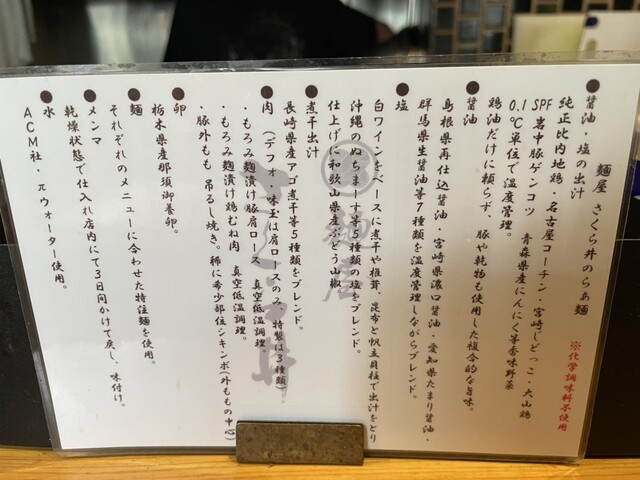 麺屋 さくら井のらぁ麺
※化学調味料不使用
●醤油・塩の出汁
純正比内地鶏・名古屋コーチン・宮崎じどっこ・大山鶏
SPF岩中豚ゲンコツ 青森県産にんにく等香味野菜
0.1℃単位で温度管理。
鶏油だけに頼らず、豚や乾物も使用した複合的な旨味。
●醤油
島根県再仕込醤油・宮崎県濃口醤油・愛知県たまり醤油・
群馬県生醤油等7種類を温度管理しながらブレンド。
●塩
白ワインをベースに煮干や椎茸、昆布と帆立貝柱で出汁をとり
沖縄のぬちまーす等5種類の塩をブレンド。
仕上げに和歌山県産ぶどう山椒
●煮干出汁
長崎県産アゴ煮干等5種類をブレンド。
●肉（デフォ・味玉は肩ロースのみ 特製は3種類）。
・もろみ麹漬け豚肩ロース 真空低温調理。
・もろみ麹漬け鶏むね肉 真空低温調理。
・豚外もも 吊るし焼き。稀に希少部位シキンボ(外ももの中心)
●卵
栃木県産那須御養卵。
●麺
それぞれのメニューに合わせた特注麺を使用。
●メンマ
乾燥状態で仕入れ店内にて3日間かけて戻し、味付け。
●水
ACM社・πウォーター使用。
麺屋
さくら井